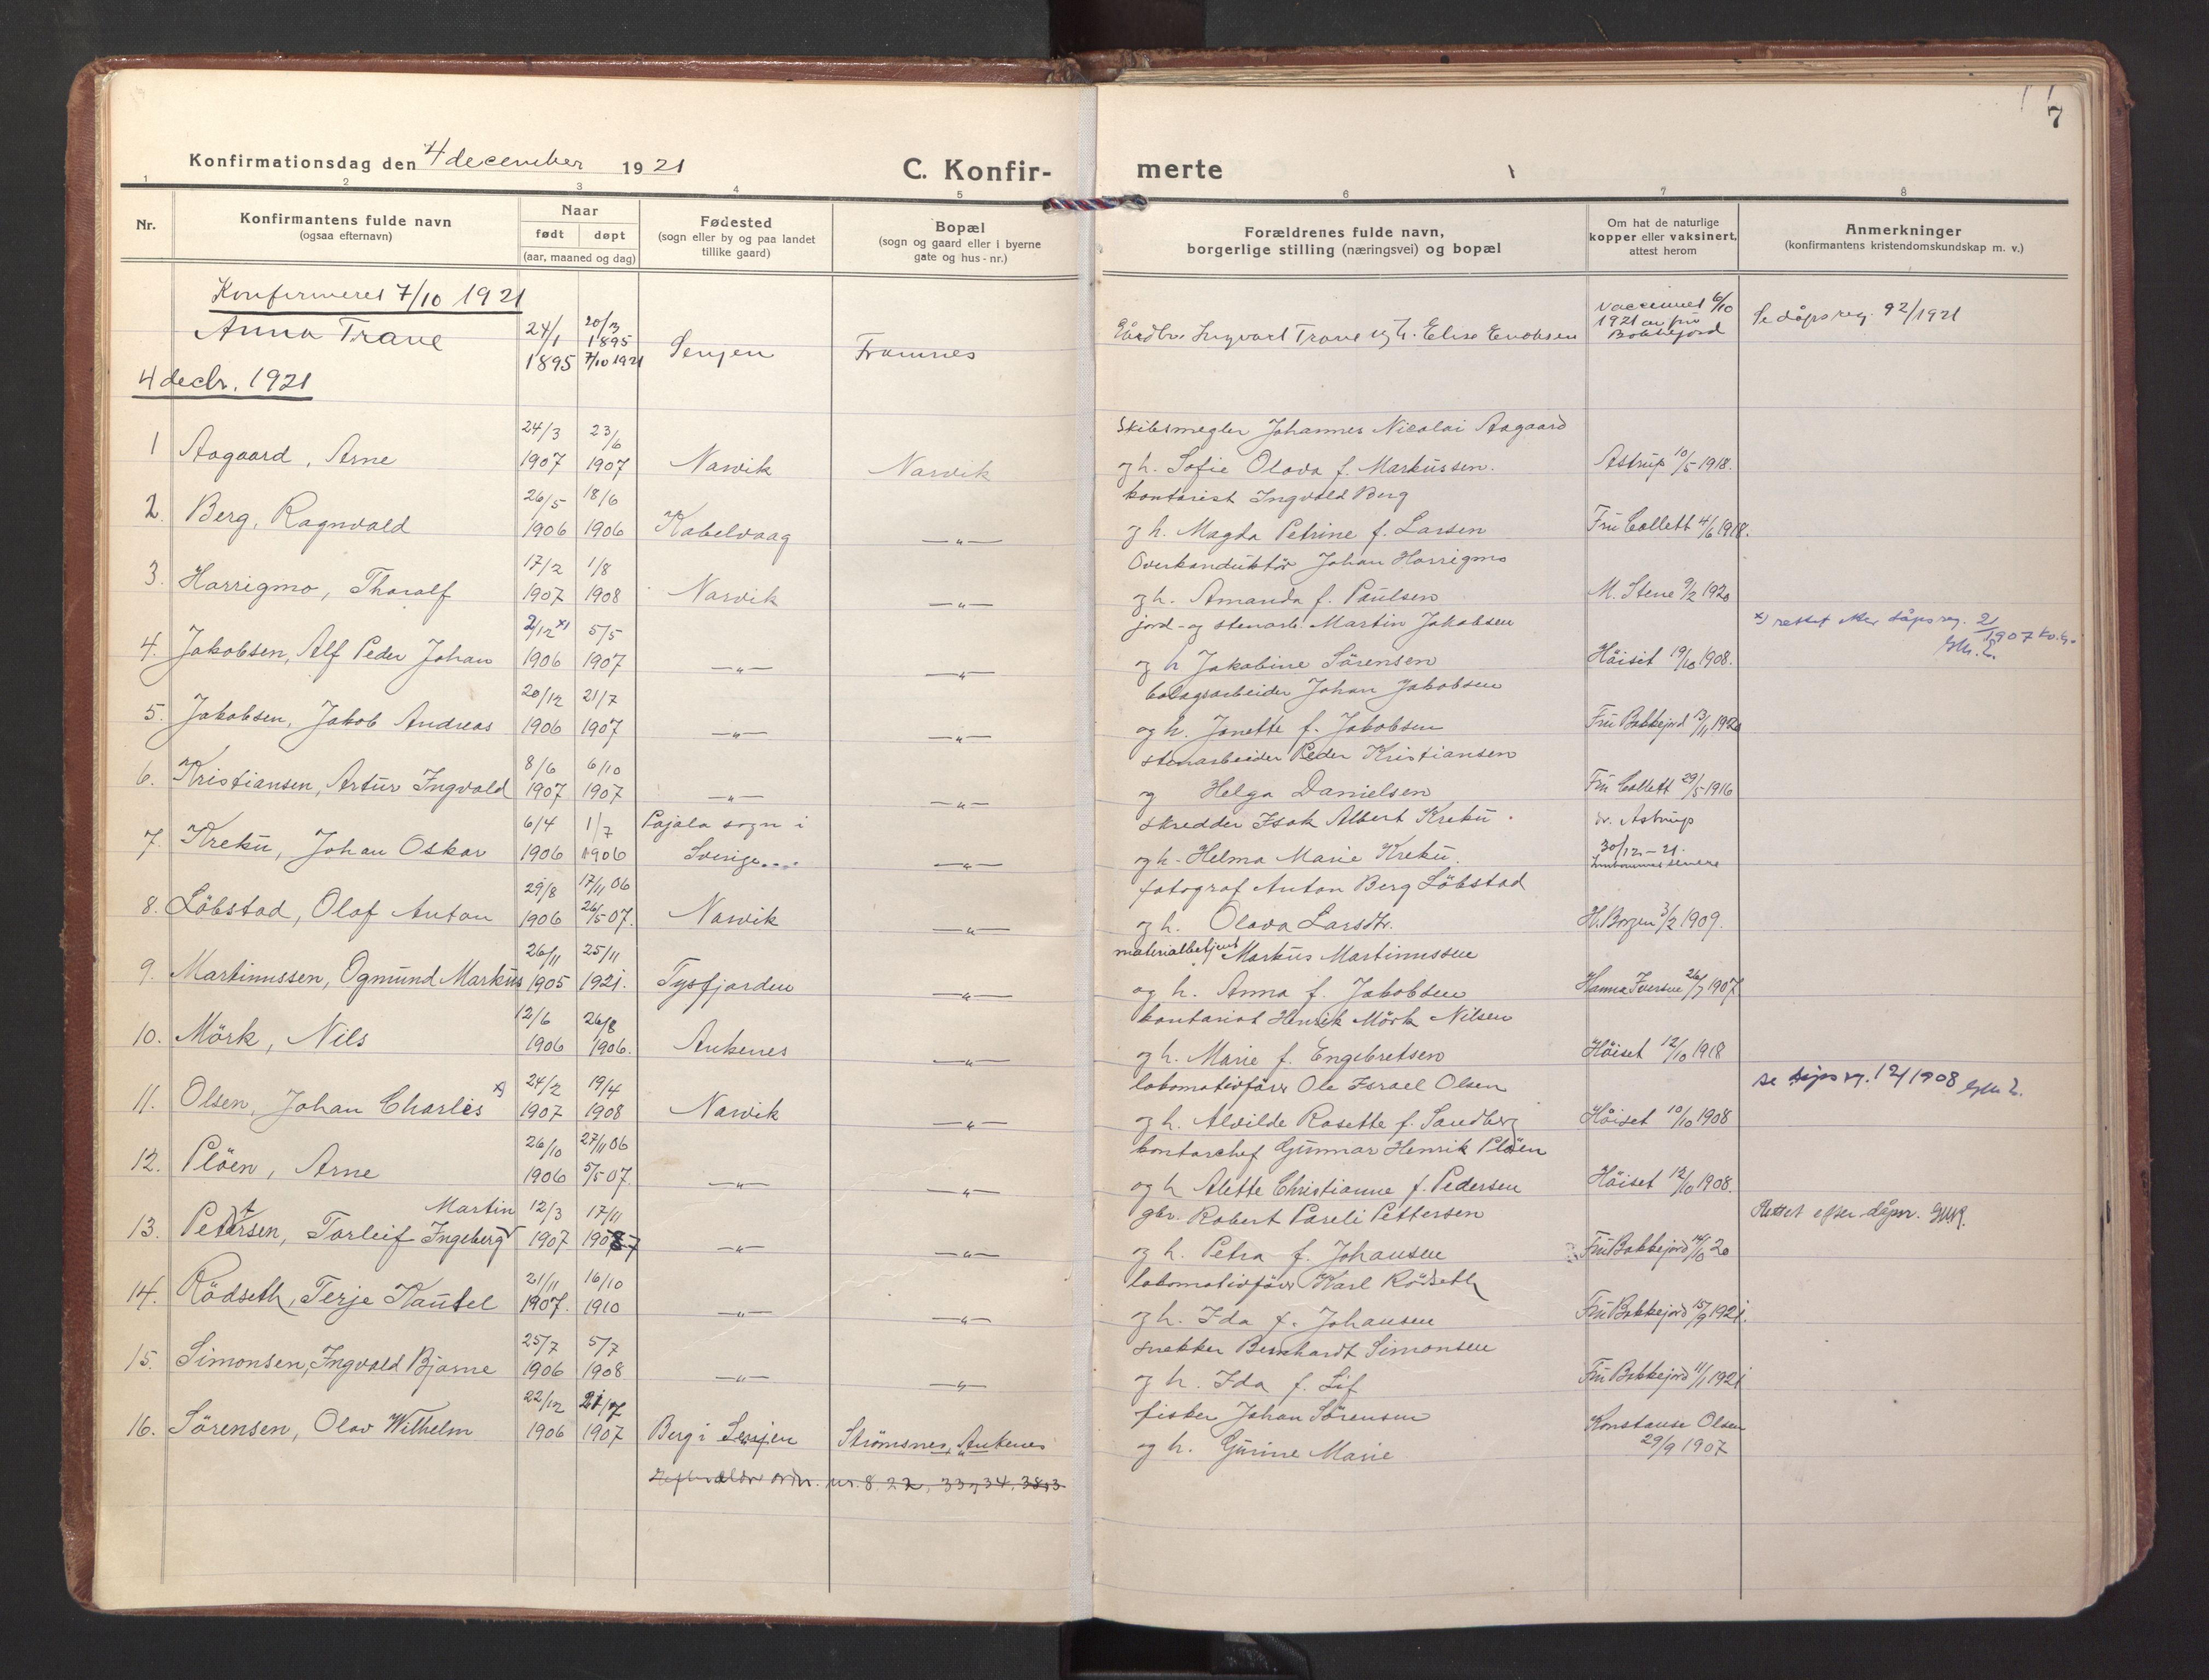 7
Konfirmationsdag den 4 december 1921
C. Konfir-
merte
1 2 3 4 5 6 7 8
Nr.
Konfirmantens fulde navn
(ogsaa efternavn)
Naar
født døpt
(aar, maaned og dag)
Fødested
(sogn eller by og paa landet
tillike gaard)
Bopæl
(sogn og gaard eller i byerne
gate og hus-nr.)
Forældrenes fulde navn,
borgerlige stilling (næringsvei) og bopæl
Om hat de naturlige
kopper eller vaksinert,
attest herom
Anmerkninger
(konfirmantens kristendomskundskap m. v.)
Konfirmeret 7/10 1921
Anna Trane 24/1 1895 20/3 1895 7/10 1921 Senjen Framnes Gårdbr. Ingvart Trane og h. Elise Enoksen 6/10 1921 av fru Bakkejord Se dåpsreg. 92/1921
4 decbr. 1921
1 Aagaard, Arne 24/3 1907 23/6 1907 Narvik Narvik Skibsmegler Johannes Nicolai Aagaard
og h. Sofie Olava f. Markussen. Astrup 10/5 1918.
2. Berg, Ragnvald 26/5 1906 18/6 1906 Kabelvaag —"— kontorist Ingvald Berg
og h. Magda Petrine f. Larsen Fru Collett 4/6 1918.
3. Harrigmo, Thoralf 17/2 1907 1/8 1908 Narvik —"— Overkonduktör Johan Harrigmo
og h. Amanda f. Paulsen M. Stene 9/2 1920
4. Jakobsen, Alf Peder Johan 2/12 x) 1906 5/5 1907 —"— —"— jord- og stenarb. Martin Jakobsen x) rettet efter dåpsreg. 2/1907
og h Jakobine Sörensen Höiset 19/10 1908.
5. Jakobsen, Jakob Andreas 20/12 1906 21/7 1907 —"— —"— bolagsarbeider Johan Jakobsen
og h. Janette f. Jakobsen Fru Bakkejord 13/11 1920
6. Kristiansen, Artur Ingvald 8/6 1907 6/10 1907 —"— —"— stenarbeider Peder Kristiansen
og Helga Danielsen Fru Collett 29/5 1916
7. Kreku, Johan Oskar 6/4 1906 1/7 1906 Pajala sogn i Sverige —"— skredder Isak Albert Kreku dr. Astrup
og h. Helma Marie Kreku. 30/12-21. senere
8. Löbstad, Olaf Anton 29/8 1906 17/11 06 26/5 07. Narvik —"— fotograf Anton Berg Löbstad
og h. Olava Larsdtr. H. Borgen 3/2 1909.
9. Martinussen, Ogmund Markus 26/11 1905 25/11 1921. Tysfjorden —"— materialbetjent Markus Martinussen
og h. Anna f. Jakobsen Hanna Iversen 26/7 1907
10. Mörk, Nils 12/6 1906 26/8 1906. Ankenes —"— kontorist Henrik Mörk Nilsen
og h. Marie f. Engebretsen Höiset 12/10 1918
11. Olsen, Johan Charles x) 24/2 1907 19/4 1908 Narvik —"— lokomotivförer Ole Israel Olsen se dåpsreg. 12/1908
og h. Alvilde Rosette f. Sandberg Höiset 10/10 1908
12. Plöen, Arne 26/10 1906 27/11 06 5/5 07. —"— —"— kontorchef Gunnar Henrik Plöen
og h Alette Christianne f. Pedersen Höiset 12/10 1908.
13. Pettersen, Torleif Ingeberg Martin 12/3 1907 17/11 1907 —"— —"— gbr. Robert Pareli Pettersen Rettet efter dåpsr.
og h. Petra f. Johansen Fru Bakkejord 14/10 20
14. Rödseth, Terje Kautel 21/11 1907. 16/10 1910 —"— —"— lokomotivförer Karl Rödseth
og h. Ida f. Johansen Fru Bakkejord 15/9 1921.
15. Simonsen, Ingvald Bjarne 25/7 1906 5/7 1908 —"— —"— snekker Bernhardt Simonsen
og h. Ida f. Lif Fru Bakkejord 11/1 1921
16. Sörensen, Olav Wilhelm 22/12 1906 21/7 1907 Berg i Senjen Strömsnes, Ankenes fisker Johan Sörensen Konstanse Olsen
og h. Gurine Marie 29/9 1907
nr. 8. 22, 33, 34,